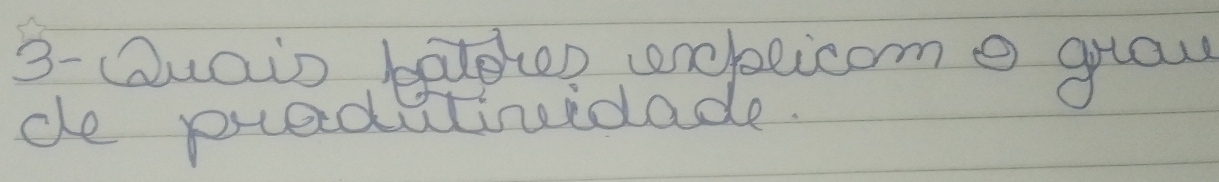 3- Quais fatores explicam o grau
de produtividade.